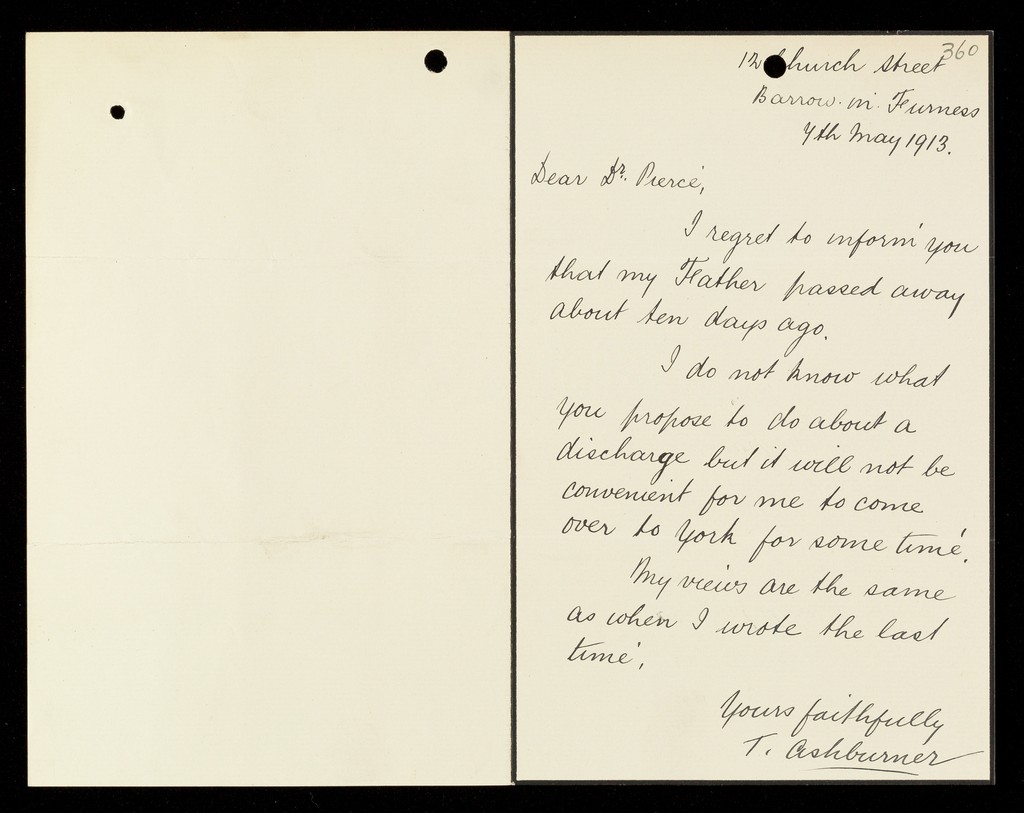 360
12 Church Street
Barrow. in. Furness
7th May 1913.
Dear Dr. Pierce,
I regret to inform you
that my Father passed away
about ten days ago.
I do not know what
you propose to do about a
discharge but it will not be
convenient for me to come
over to York for some time.
My views are the same
as when I wrote the last
time,
Yours faithfully
T. Ashburner